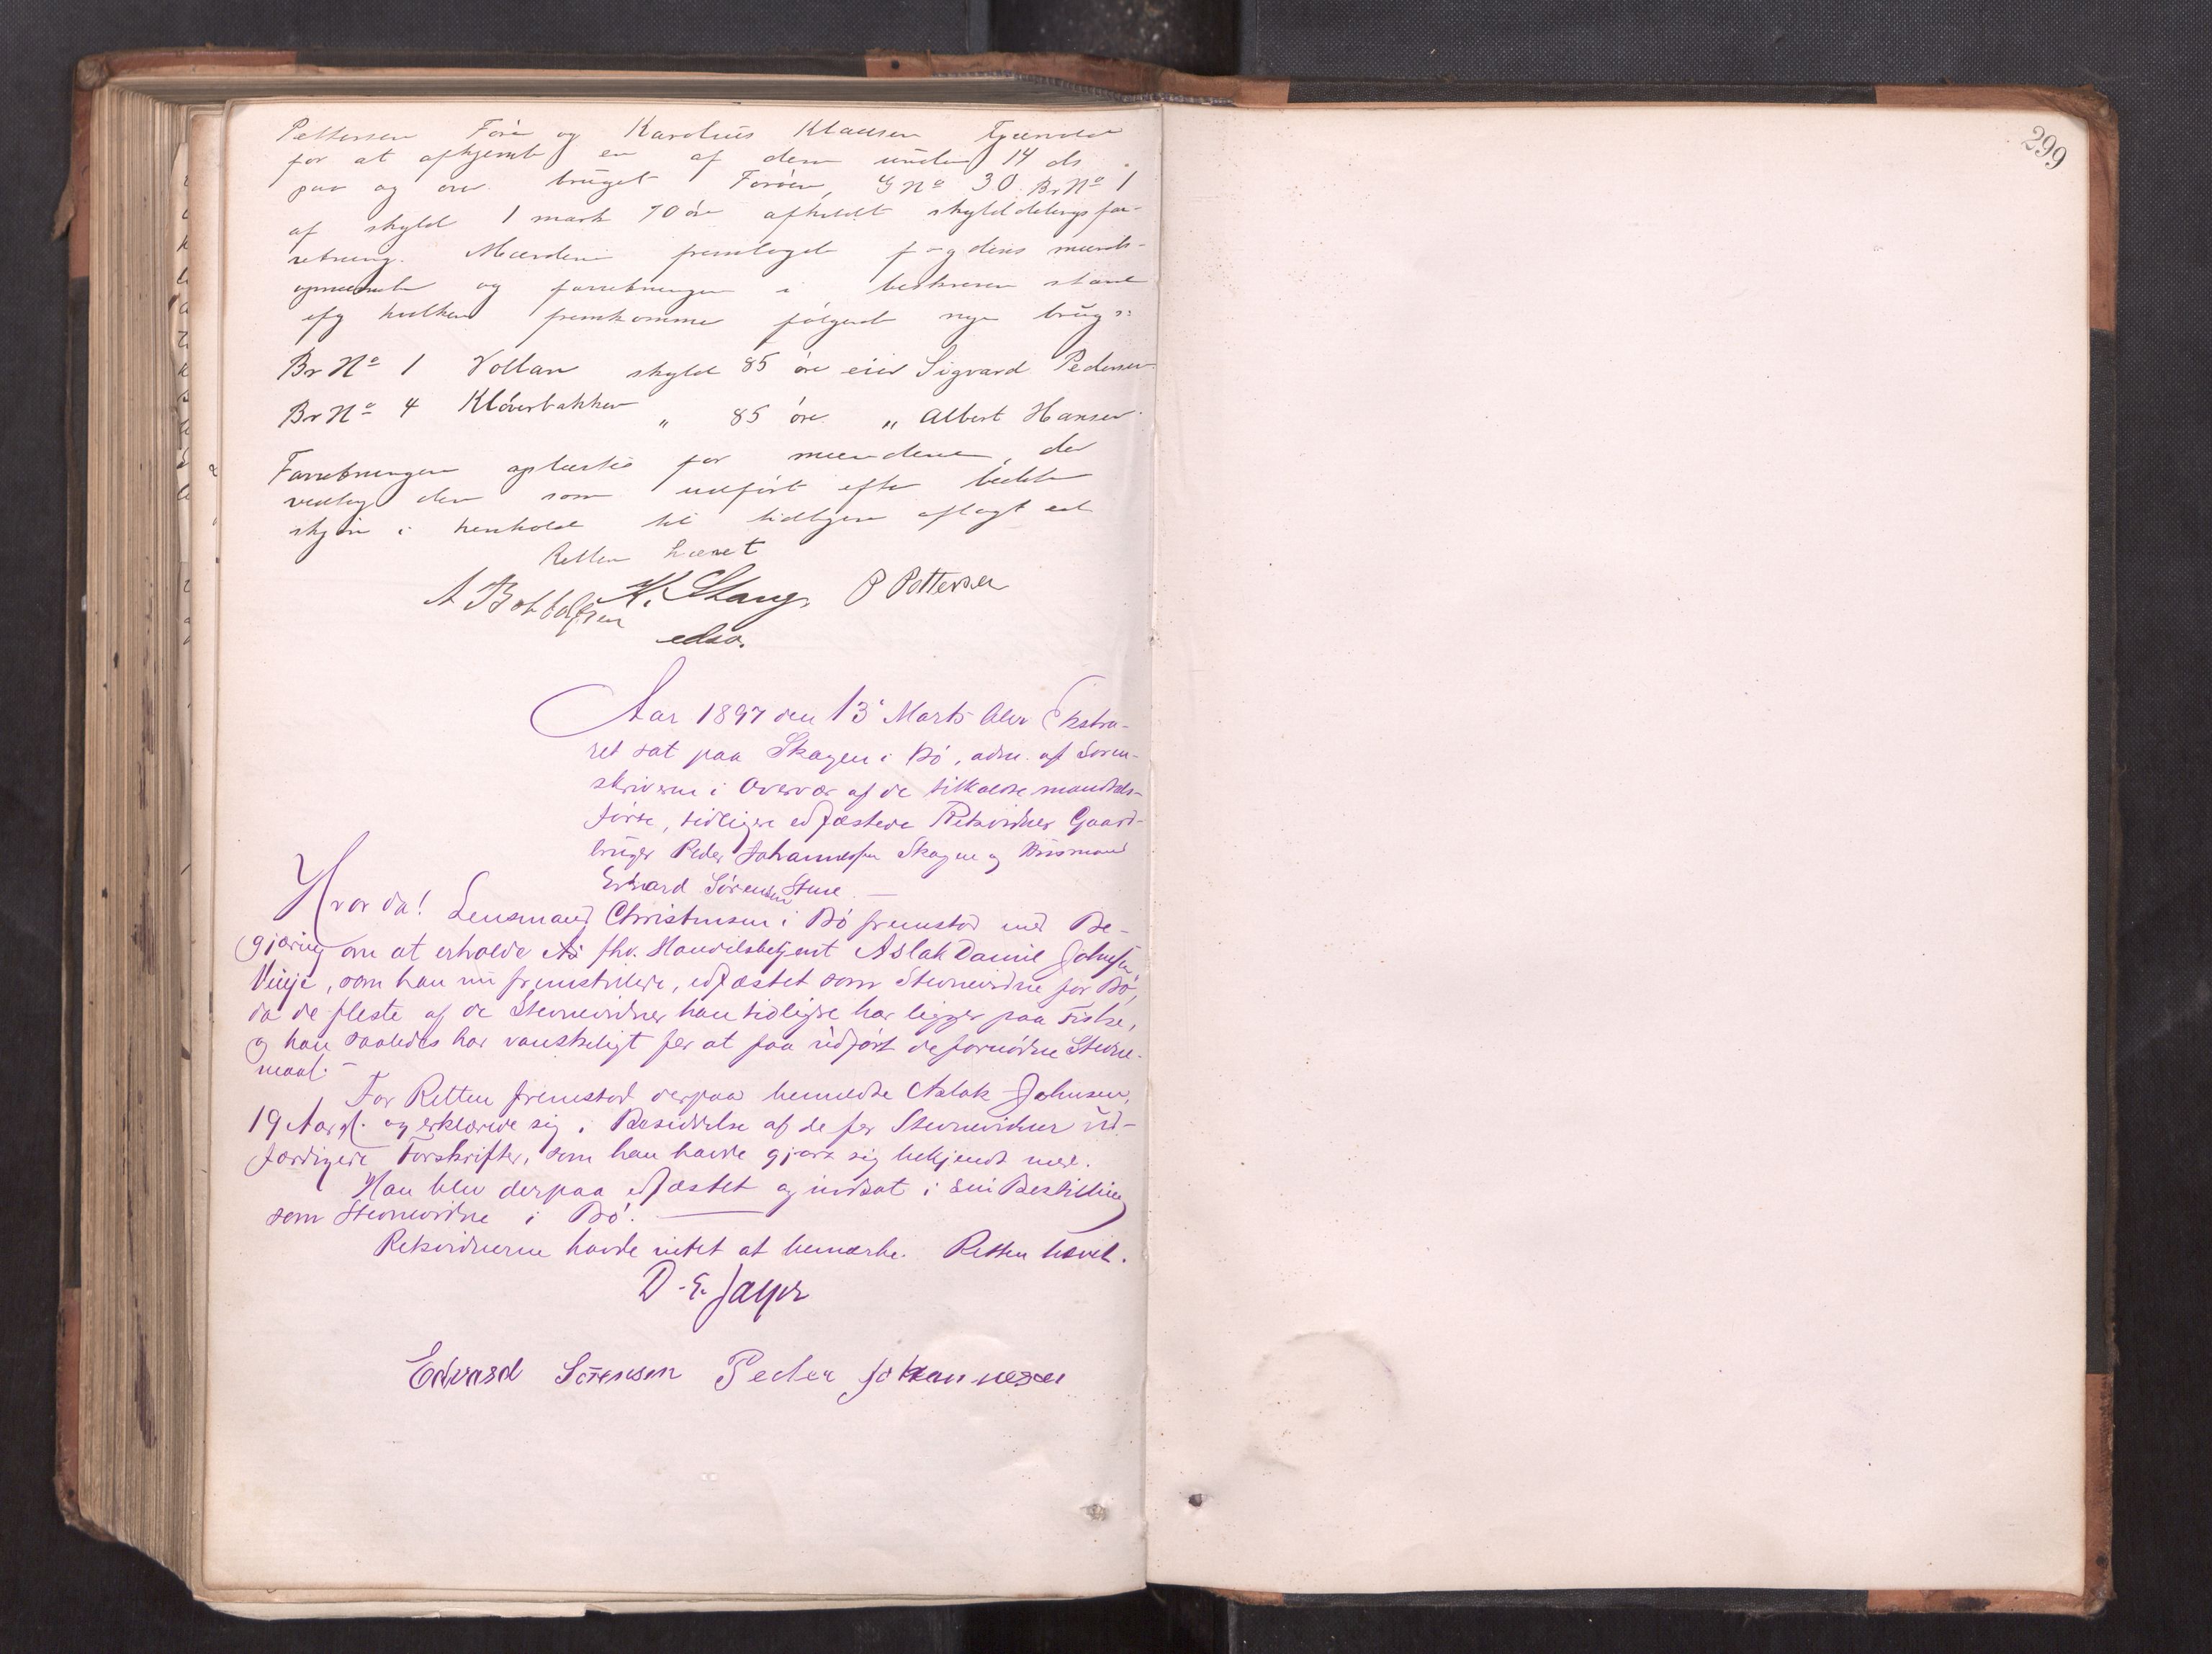 Pettersen Före og Karolius Klausen
for at afhjemle en af dem under 14 ds
paa og over bruget Foröen, G No 30 Br No 1
af skyld 1 mark 70 øre afholdt skylddelingsfor-
retning. Mændene fremlagde
og forretningen i beskreven stand
efg hvilken fremkommer følgende nye brug:
Br No 1 Vollan skyld 85 øre eier Sigvard Pedersen
Br No 4 Kløverbakken „ 85 øre „ Albert Hansen
Forretningen oplæstes for mændene, der
vedtog den som udført efter bedste
skjøn i henhold til tidligere aflagt ed
Retten hævet
A Bottolfsen K. Stang P Pettersen
edsv.
Aar 1897 den 13' Marts blev Ekstra-
ret sat paa Skagen i Bø, adm. af Soren-
skriveren i Overvær af de tilkaldte mandtals-
førte, tidligere edfæstede Retsvidner Gaard-
bruger Peder Johannessen Skagen og Husmand
Edvard Sørensen Steine —
Hvorda! Lensmand Christensen i Bø fremstod med Be-
gjæring om at erholde fhv. Handelsbetjent Aslak Daniel Johnsen
Vinje, som han nu fremstillede, edfæstet som Stevnevidne for Bø,
da de fleste af de Stevnevidner han tidligere har ligger paa Fiske,
og han saaledes har vanskeligt for at faa udført de fornødne Stevne-
maal. —
For Retten fremstod derpaa bemeldte Aslak Johnsen,
19 Aar gl. og erklærede sig i Besiddelse af de for Stevnevidner ud-
færdigede Forskrifter, som han havde gjort sig bekjendt med.
Han blev derpaa edfæstet og indsat i sin Bestilling
som Stevnevidne i Bø. —
Retsvidnerne havde intet at bemærke. Retten hævet.
D. E. Jager
Edvard Sörensen Peder Johannesen
299